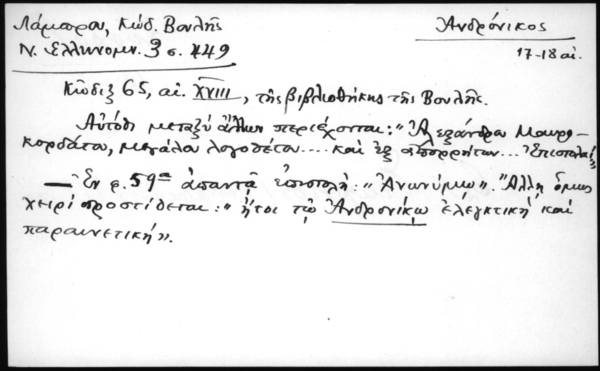 Λάμπρου, Κώδ. Βουλῆς
Ἀνδρόνικος
Ν. Ἑλληνομν. 3 σ. 449
17-18 αἰ.
Κῶδιξ 65, αἰ. XVIII, τῆς βιβλιοθήκης τῆς Βουλῆς.
Αὐτόθι μεταξὺ ἄλλων περιέχονται: "Ἀλεξάνδρου Μαυρο-
κορδάτου, μεγάλου λογοθέτου.... καὶ ἐξ ἀπορρήτων... Ἐπιστολαὶ
— Ἐν φ. 59α ἀπαντᾷ ἐπιστολή: "Ἀνωνύμῳ". Ἄλλη ὅμως
χεὶρ προστίθεται: "ἤτοι τῷ Ἀνδρονίκῳ ἐλεγκτικὴ καὶ
παραινετική".